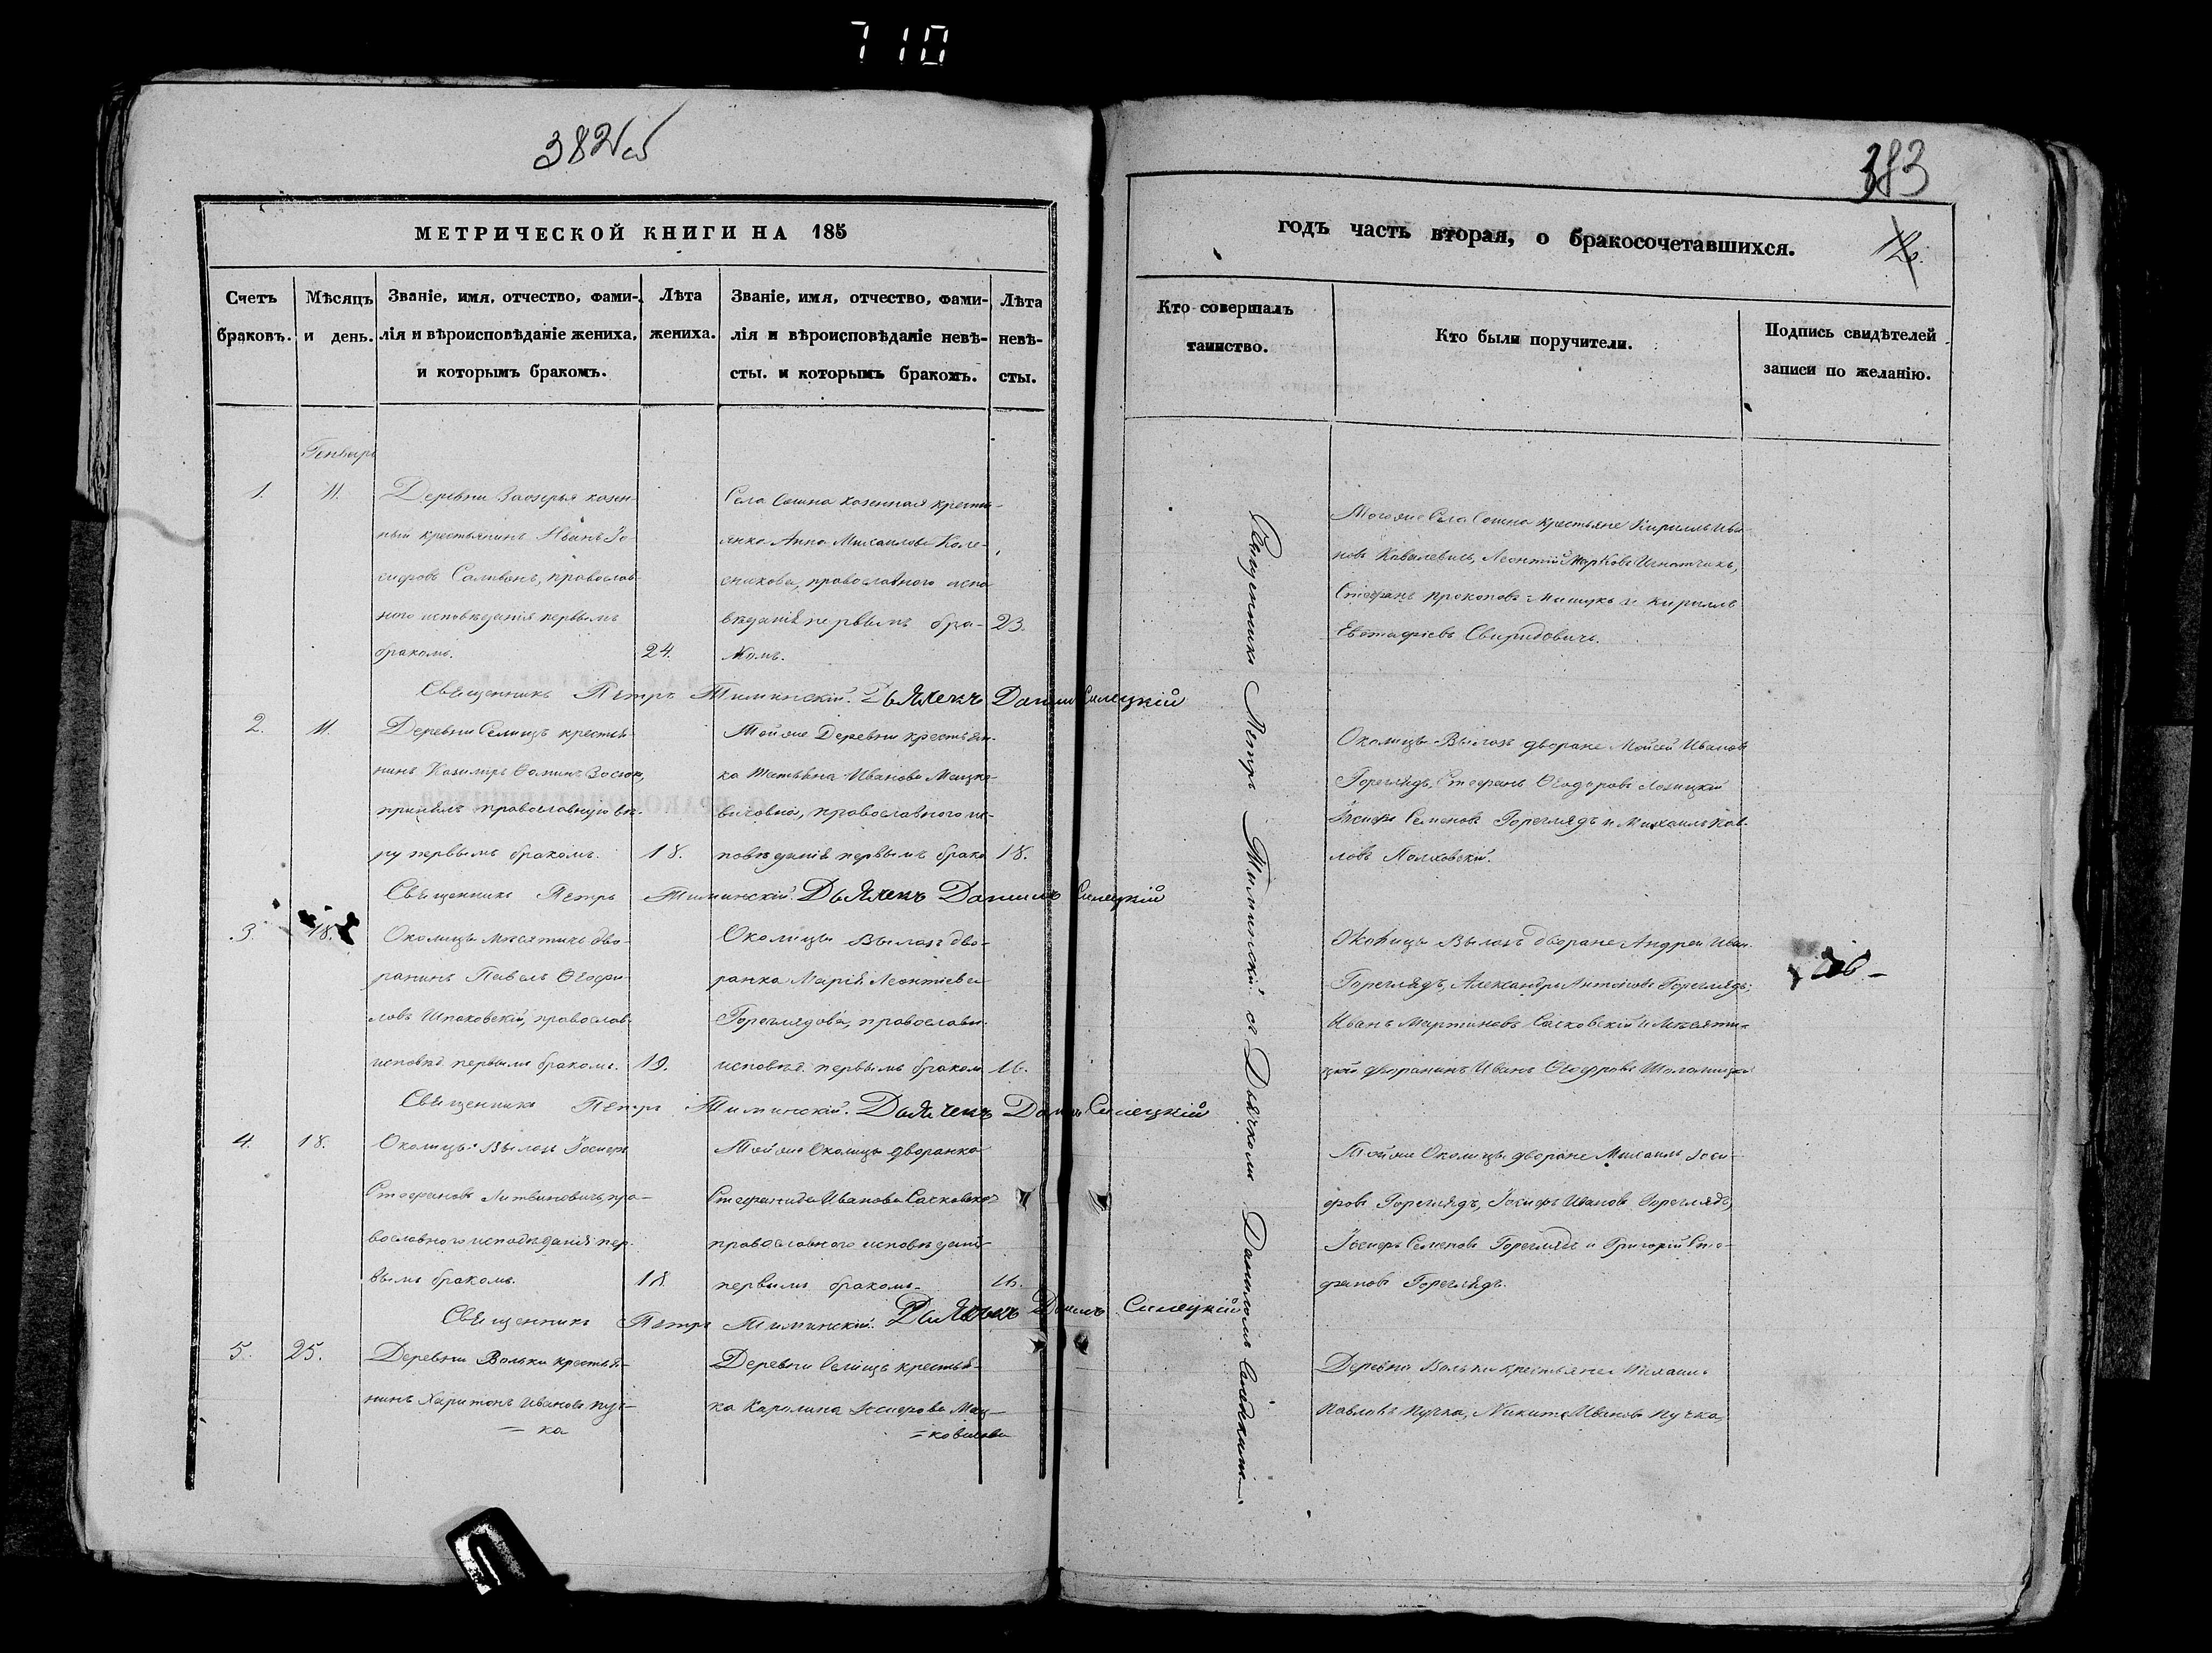 710
382об
383
МЕТРИЧЕСКОЙ КНИГИ НА 185
годъ часть вторая, о бракосочетавшихся.
Счетъ браковъ.
Мѣсяцъ и день.
Званіе, имя, отчество, фами-
лія и вѣроисповѣданіе жениха,
и которымъ бракомъ.
Лѣта жениха.
Званіе, имя, отчество, фами-
лія и вѣроисповѣданіе невѣ-
сты. и которымъ бракомъ.
Лѣта невѣ-
сты.
Кто совершалъ
таинство.
Кто были поручители.
Подпись свидѣтелей
записи по желанію.
Генварь
1. 11.
Деревни Заозерья казен-
ный крестьянинъ Иванъ Іо-
сифовъ Саливонъ, православ-
наго исповѣданія первымъ
бракомъ. 24.
Села казенная крестья-
янка Анна Михаилова Коле-
сникова, православного испо
вѣданія первымъ бра- 23.
комъ.
Того же Села крестьяне Кириллъ Ива-
новъ Кавалевичъ, Леонтій Марковъ Игнатчикъ,
Стефанъ Прокоповъ Мишукъ и Кириллъ
Евстафіевъ Свиридовичъ.
Священникъ Петръ Тиминскій. Дьячекъ Данилъ Силецкій
2. 11.
Деревни Селищъ крестья-
нинъ Казимиръ
принялъ православную вѣ-
ру первымъ бракомъ. 18.
Той же Деревни крестьян-
ка Татьяна Иванова Мацке-
вичовна, православного ис-
повѣданія первымъ брако 18.
Околицы Вылазъ дворяне Мойсей Ивановъ
Гореглядъ, Стефанъ Ѳеодоровъ
Іосифъ Семеновъ Гореглядъ и Михаилъ Пав-
ловъ Полховскій.
Священникъ Петръ Тиминскій. Дьячекъ Данилъ Силецкій
3. 18.
Околицы Мѣсятичъ дво-
рянинъ Павелъ Ѳеофи-
ловъ Шпаковскій, православ-
исповѣд. первымъ бракомъ. 19.
Околицы Вылазъ дво-
рянка Марія Леонтіева
Гореглядова, православн.
исповѣд. первымъ бракомъ 16.
Околицы Вылазъ дворяне Андрей Иван.
Гореглядъ, Александръ Антоновъ Гореглядъ;
Иванъ Мартиновъ Сачковскій и Мѣсяти-
цкій дворянинъ Иванъ
Священникъ Петръ Тиминскій. Дьячекъ Данилъ Силецкій
4. 18.
Околицы Вылазъ Іосифъ
Стефановъ Литвиновичъ, пра-
вославного исповѣданія пер-
вымъ бракомъ. 18
Той же Околицы дворянка
Стефанида Иванова Сачковска
православного исповѣдані-
первымъ бракомъ. 16.
Той же Околицы дворяне Михаилъ Іоси-
фовъ Гореглядъ, Іосифъ Ивановъ Гореглядъ,
Іосифъ Семеновъ Гореглядъ и Григорій Сте-
фановъ Гореглядъ.
Священникъ Петръ Тиминскій. Дьячекъ Данилъ Силецкій
5. 25.
Деревни Вольки крестья-
нинъ Харитонъ Ивановъ Пуч-
=ка
Деревни Селищъ крестья-
ка Каролина Іосифова Мац-
=кевичова
Деревни Вольки крестьяне Михаилъ
Павловъ Пучка, Никита Ивановъ Пучка,
Священникъ Петръ Тиминскій съ Дьячкомъ Даниломъ Силецкимъ.